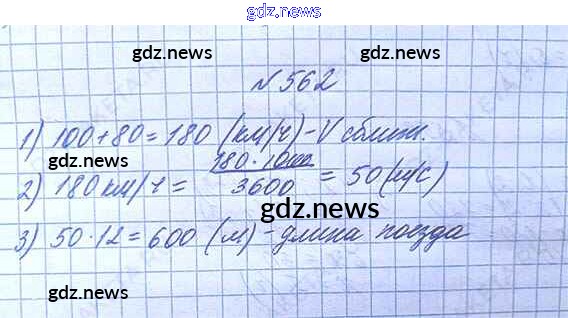 gdz.news
gdz.news gdz.news
№562
1) 100+80=180 (км/ч)-V сближ.
gdz.news 180·1000
2) 180км/ч = 3600 = 50(м/с)
gdz.news
3) 50·12=600 (м)-длина поезда
gdz.news
gdz.news